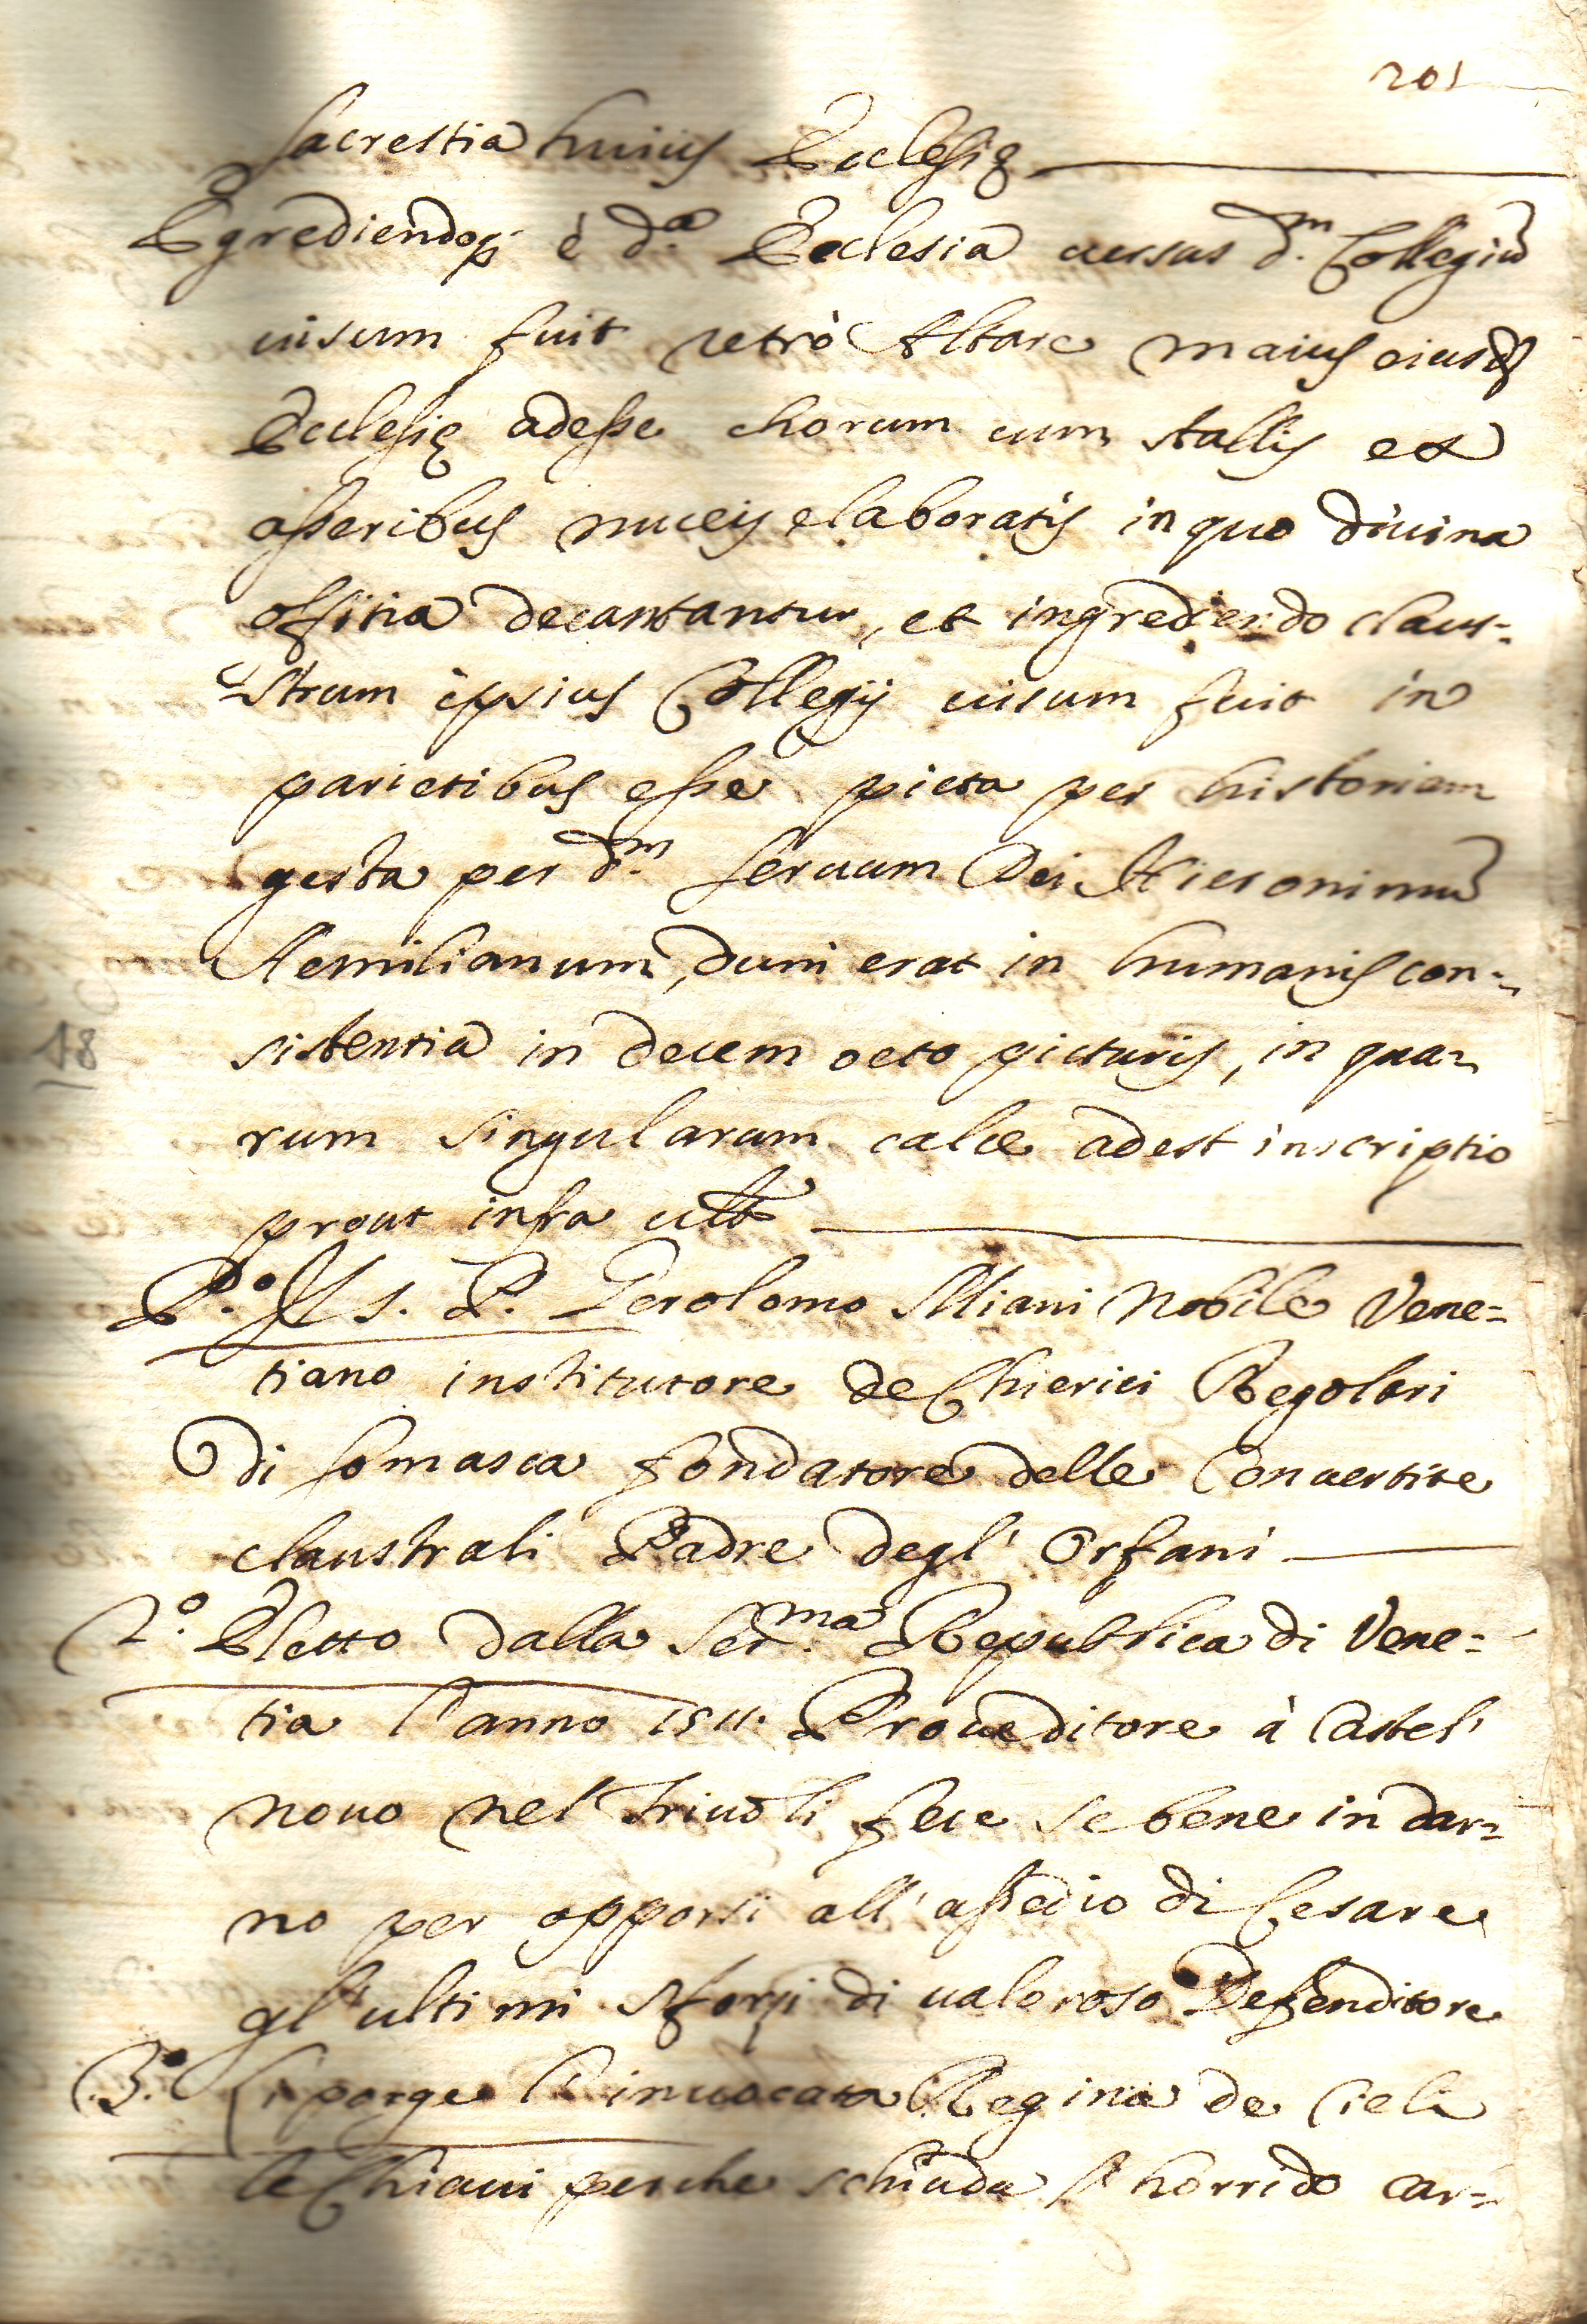 201
sacrestia huius Ecclesię
Egrediendoq; è d.ª Ecclesia uersus d.ᵐ Collegiũ
uisum fuit retrò Altare maius eiusd.
Ecclesię adesse chorum cum stallis et
asseribus nuceis elaboratis in quo diuina
offitia decantantur, et ingrediendo claus-
strum ipsius Collegij uisum fuit in
parietibus esse picta per historiam
gesta per d.ᵐ seruum Dei Hieronimũ
Aemilianum, dum erat in humanis con-
sistentia in decem octo picturis, in qua-
18
rum singularum calce adest inscriptio
prout infra
P.º Il S. P. Gerolomo Miani Nobile Vene-
tiano institutore de Chierici Regolari
di Somasca fondatore delle Conuertite
claustrali Padre degl' Orfani
2.º Eletto dalla Ser.ᵐᵃ Republica di Vene-
tia l'anno 1511. Proueditore à Castel
nouo nel Triuoli fece se bene in dar-
no per opporsi all'assedio di Cesare
gl'ultimi sforzi di ualoroso Defenditore
3.º Porge l'inuocata Regina de Cieli
le Chiaui perche schiuda l'horrido car-